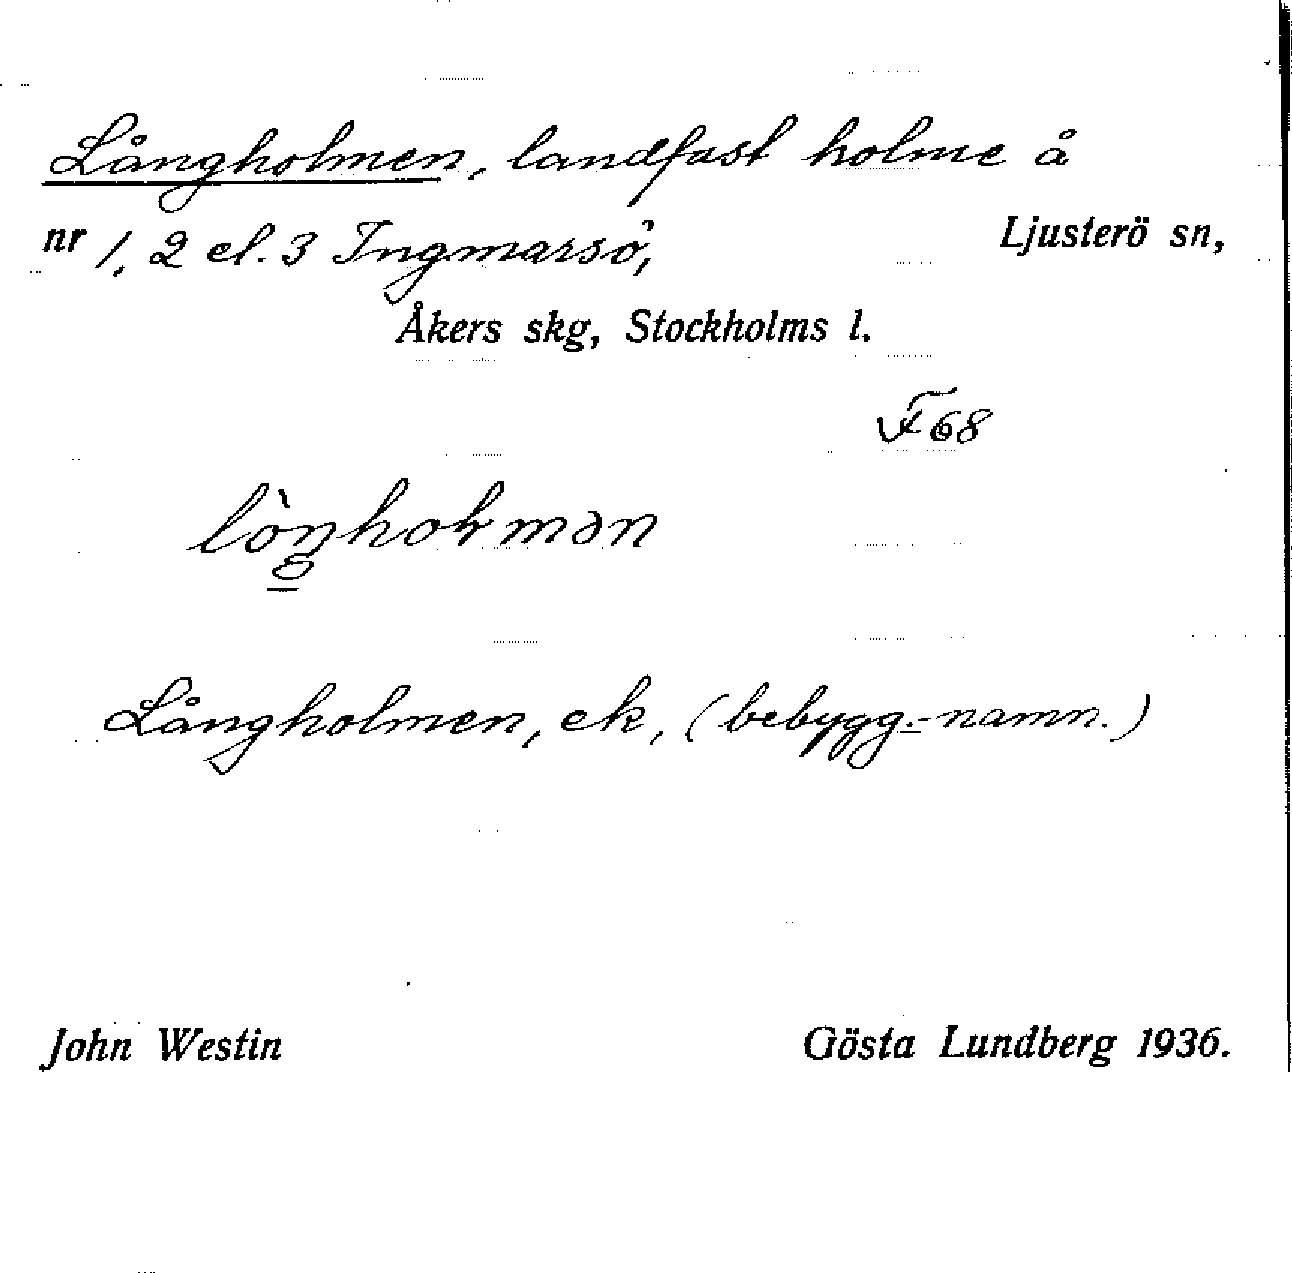 Långholmen, landfast holme å
nr 1, 2 el. 3 Ingmarsö, Ljusterö sn,
Åkers skg, Stockholms l.
F 68
Långholmen, ek, (bebygg.-namn.)
John Westin Gösta Lundberg 1936.